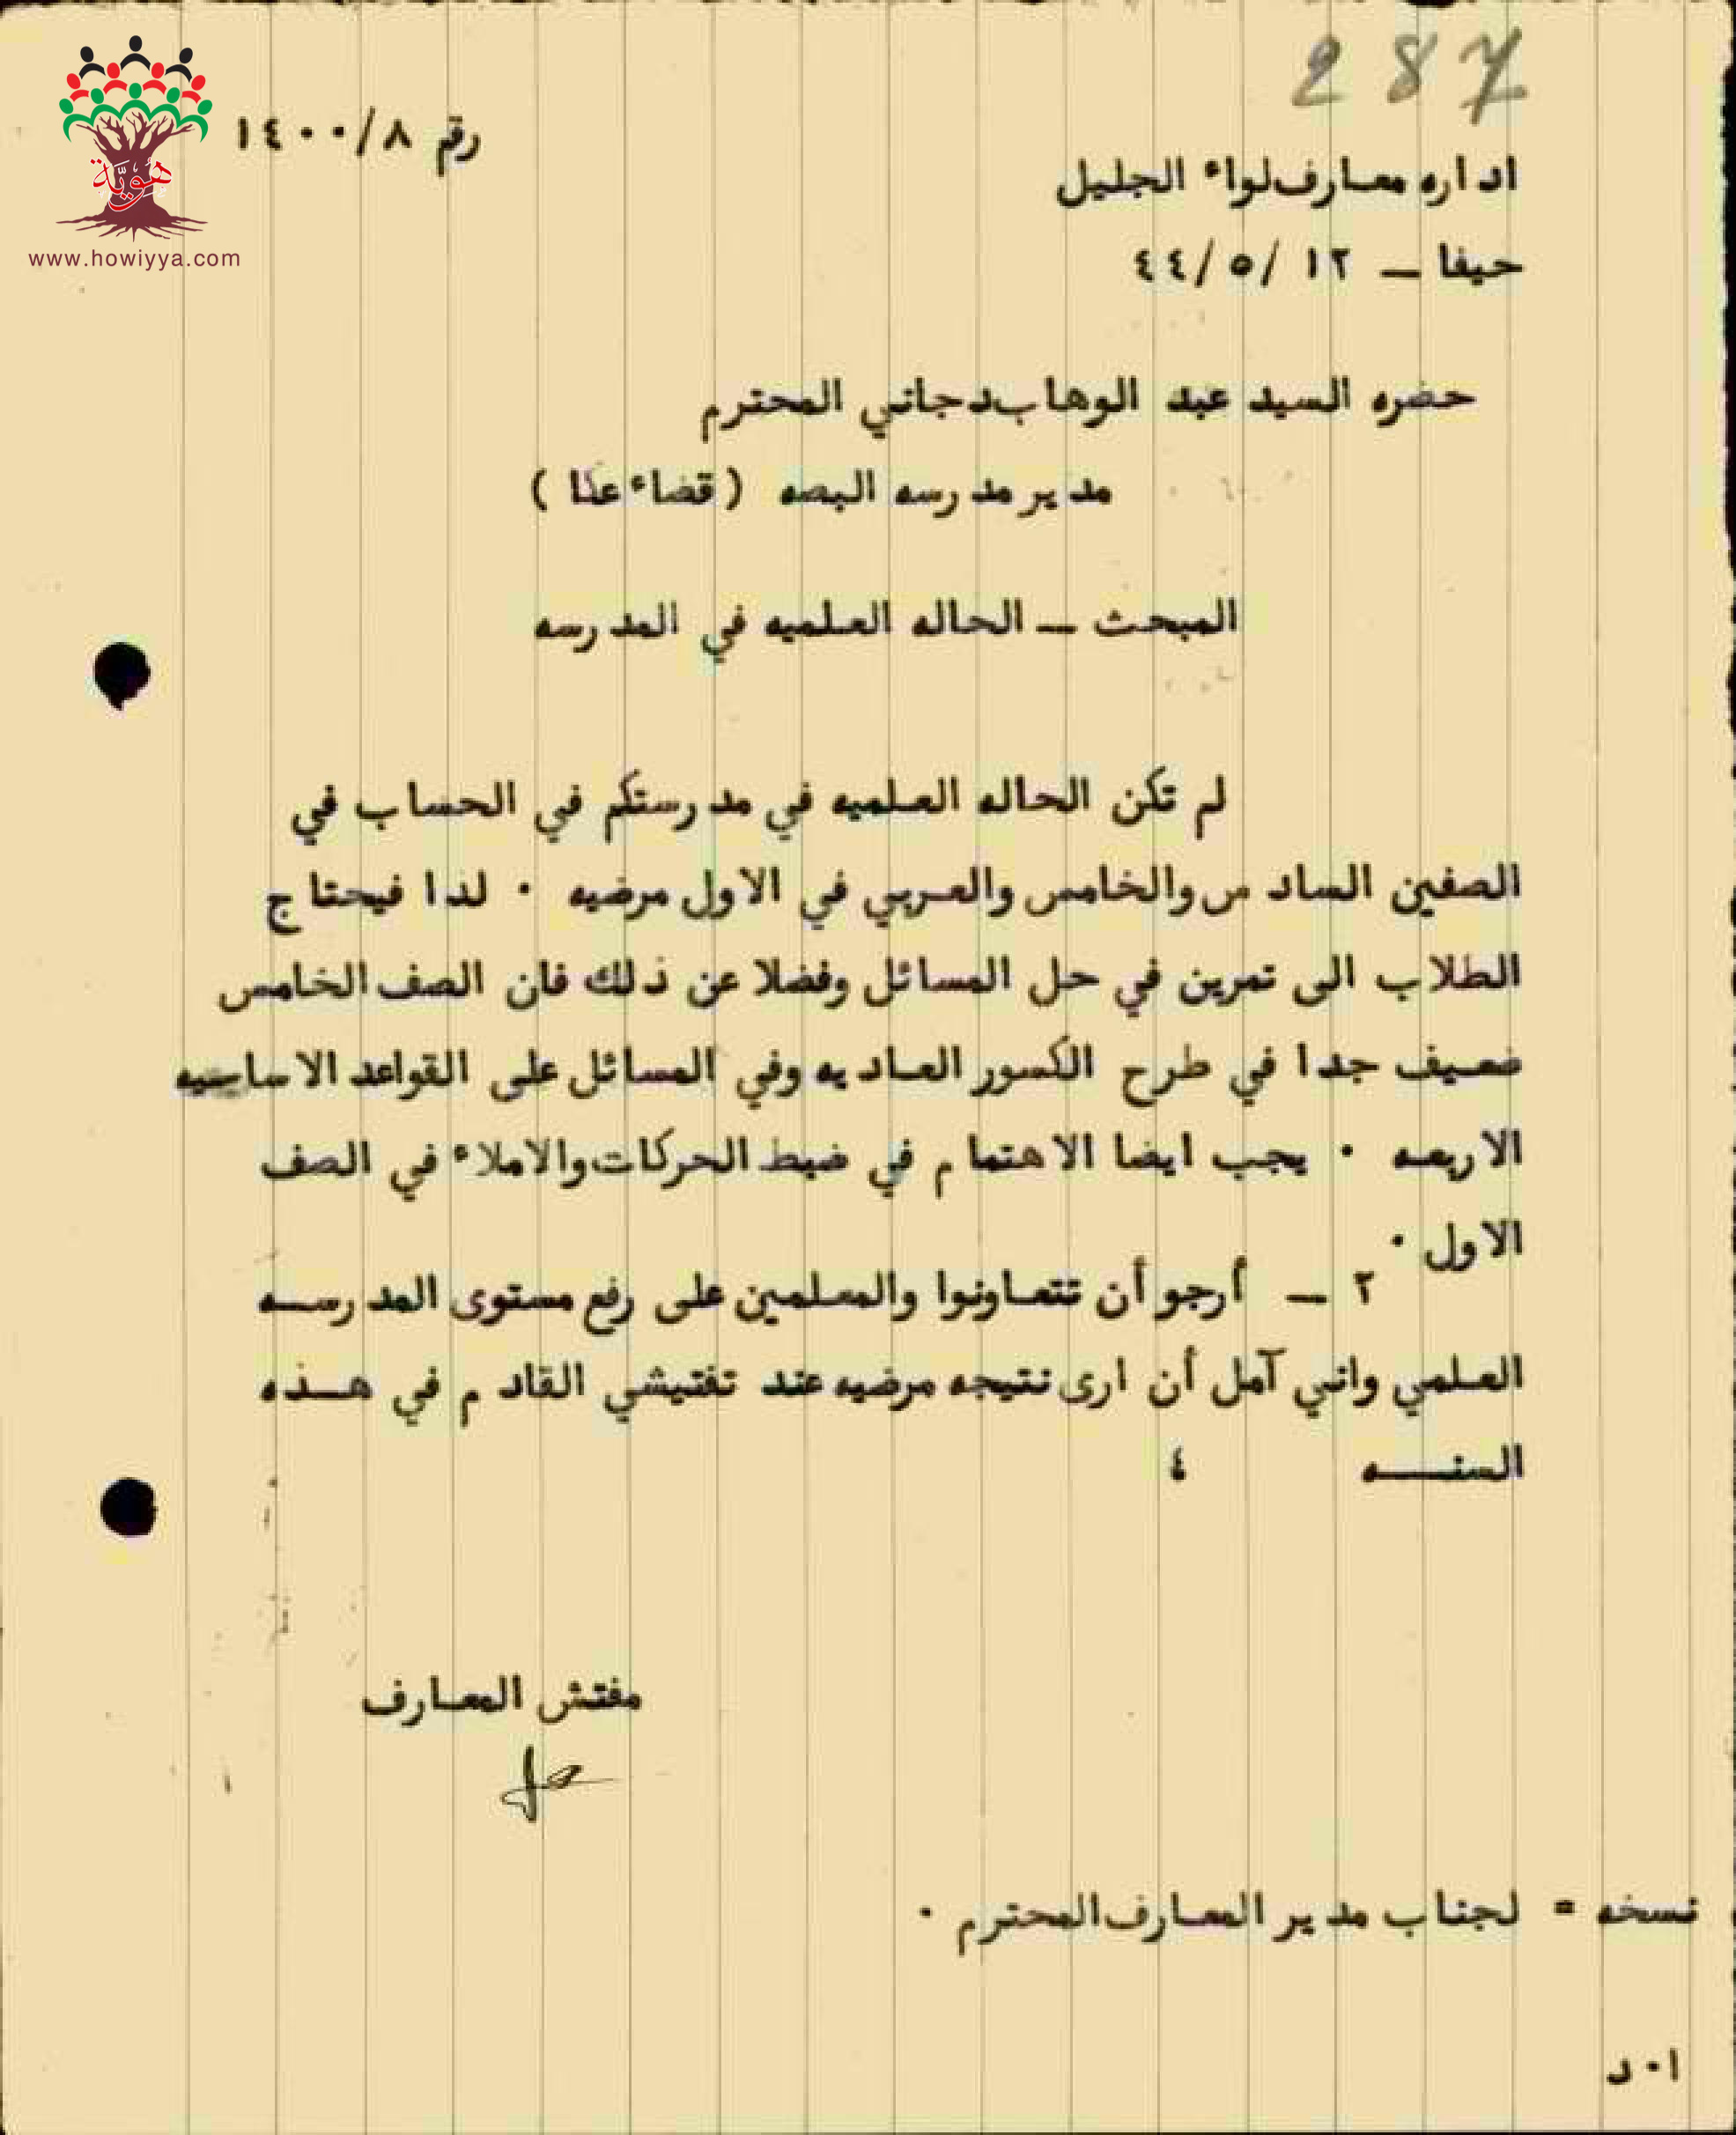 287
رقم ١٤٠٠/٨
هويّة
www.howiyya.com
اداره معارف لواء الجليل
حيفا ــ ١٢ /٤٤/٥
حضره السيد عبد الوهاب دجاني المحترم
مدير مدرسه البصه ( قضاء عكا )
المبحث ــ الحاله العلميه في المدرسه
لم تكن الحاله العلميه في مدرستكم في الحساب في
الصفين السادس والخامس والعربي في الاول مرضيه ٠ لذا فيحتاج
الطلاب الى تمرين في حل المسائل وفضلا عن ذلك فان الصف الخامس
ضعيف جدا في طرح الكسور العاديه وفي المسائل على القواعد الاساسيه
الاربعه ٠ يجب ايضا الاهتمام في ضبط الحركات والاملاء في الصف
الاول ٠
٢ ــ أرجو أن تتعاونوا والمعلمين على رفع مستوى المدرســه
العلمي واني آمل أن ارى نتيجه مرضيه عند تفتيشي القادم في هــذه
السنــــه ٤
مفتش المعارف
نسخه = لجناب مدير المعارف المحترم ٠
ا٠د